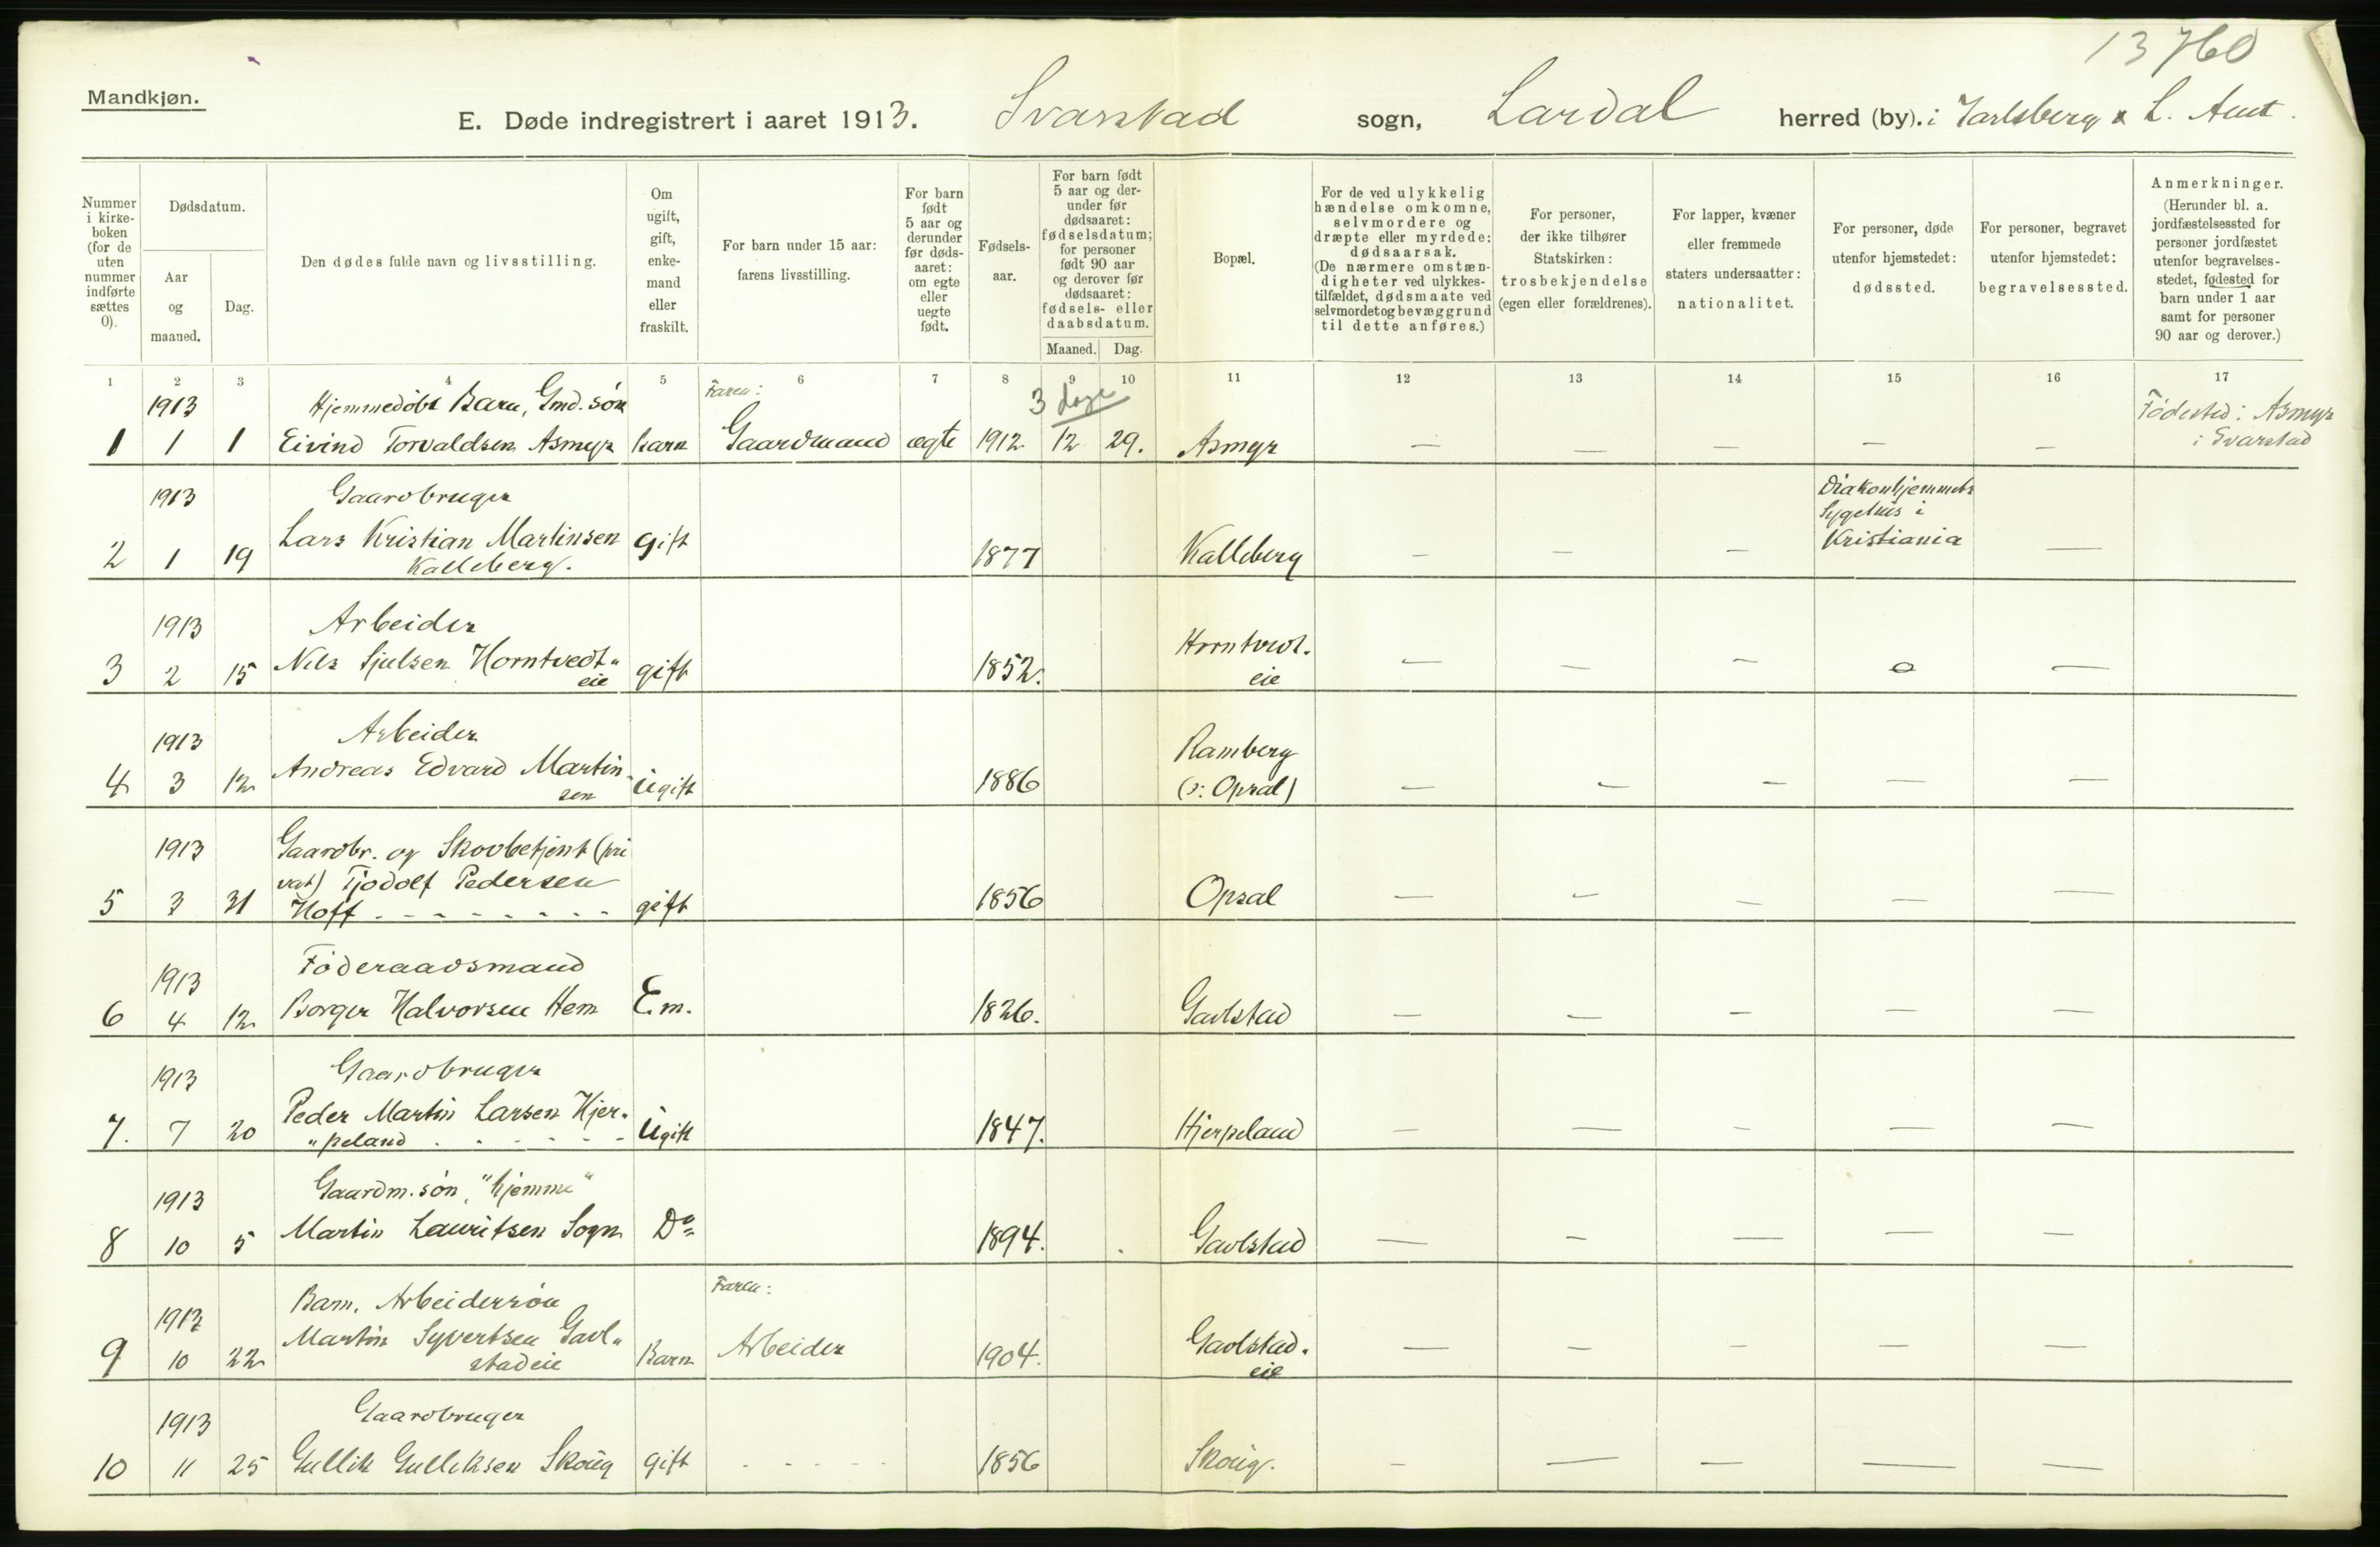 13760
Mandkjøn.
E. Døde indregistrert i aaret 1913. Svarstad sogn, Lardal herred (by). i Jarlsberg & L. Amt.
Nummer i kirke-boken (for de uten nummer indførte sættes 0).
Dødsdatum.
Aar og maaned.
Dag.
Den dødes fulde navn og livsstilling.
Om ugift, gift, enke-mand eller fraskilt.
For barn under 15 aar: farens livsstilling.
For barn født 5 aar og derunder før døds-aaret: om egte eller uegte født.
Fødsels-aar.
For barn født 5 aar og der-under før dødsaaret: fødselsdatum; for personer født 90 aar og derover før dødsaaret: fødsels- eller daabsdatum.
Maaned. Dag.
Bopæl.
For de ved ulykkelig hændelse omkomne, selvmordere og dræpte eller myrdede: dødsaarsak. (De nærmere omstæn-digheter ved ulykkes-tilfældet, dødsmaate ved selvmordet og bevæggrund til dette anføres.)
For personer, der ikke tilhører Statskirken: trosbekjendelse (egen eller forældrenes).
For lapper, kvæner eller fremmede staters undersaatter: nationalitet.
For personer, døde utenfor hjemstedet: dødssted.
For personer, begravet utenfor hjemstedet: begravelsessted.
Anmerkninger. (Herunder bl. a. jordfæstelsessted for personer jordfæstet utenfor begravelses-stedet, fødested for barn under 1 aar samt for personer 90 aar og derover.)
1 2 3 4 5 6 7 8 9 10 11 12 13 14 15 16 17
1913 Hjemmedøbt Barn, Gmd. søn Faren: 3 dage Fødested: Asmyr
1 1 1 Eivind Torvaldsen Asmyr barn Gaardmand ægte 1912. 12 29. Asmyr — — — — — i Svarstad
1913 Gaardbruger Diakonhjemmets
Sygehus i
2 1 19 Lars Kristian Martinsen Gift 1877 Kalleberg — — — Kristiania —
Kalleberg.
1913 Arbeider Horntvedt-
3 2 15 Nils Sjulsen Horntvedt- gift 1852. eie — — — — —
eie
1913 Arbeider Ramberg
4 3 12 Andreas Edvard Martin- Ugift 1886 (o: Opsal) — — — — —
sen
1913 Gaardbr. og Skovbetjent (pri
vat) Tjodolf Pedersen
5 3 31 Hoff - - - - - - - - gift 1856 Opsal — — — — —
1913 Føderaadsmand
6 4 12 Borger Halvorsen Hem E.m. 1826. Gavlstad — — — — —
1913 Gaardbruger
Peder Martin Larsen Hjer-
7. 7 20 "peland - - - - - - Ugift 1847. Hjerpeland — — — — —
1913 Gaardm. søn, "hjemme"
8 10 5 Martin Lauritsen Sogn Do 1894. Gavlstad — — — — —
1913 Barn. Arbeidersøn Faren:
Martin Syvertsen Gavl- Gavlstad-
9 10 22 stadeie Barn Arbeider 1904. eie — — — — —
1913 Gaardbruger
10 11 25 Gullik Gulliksen Skoug gift - - - - - 1856 Skoug. — — — — —